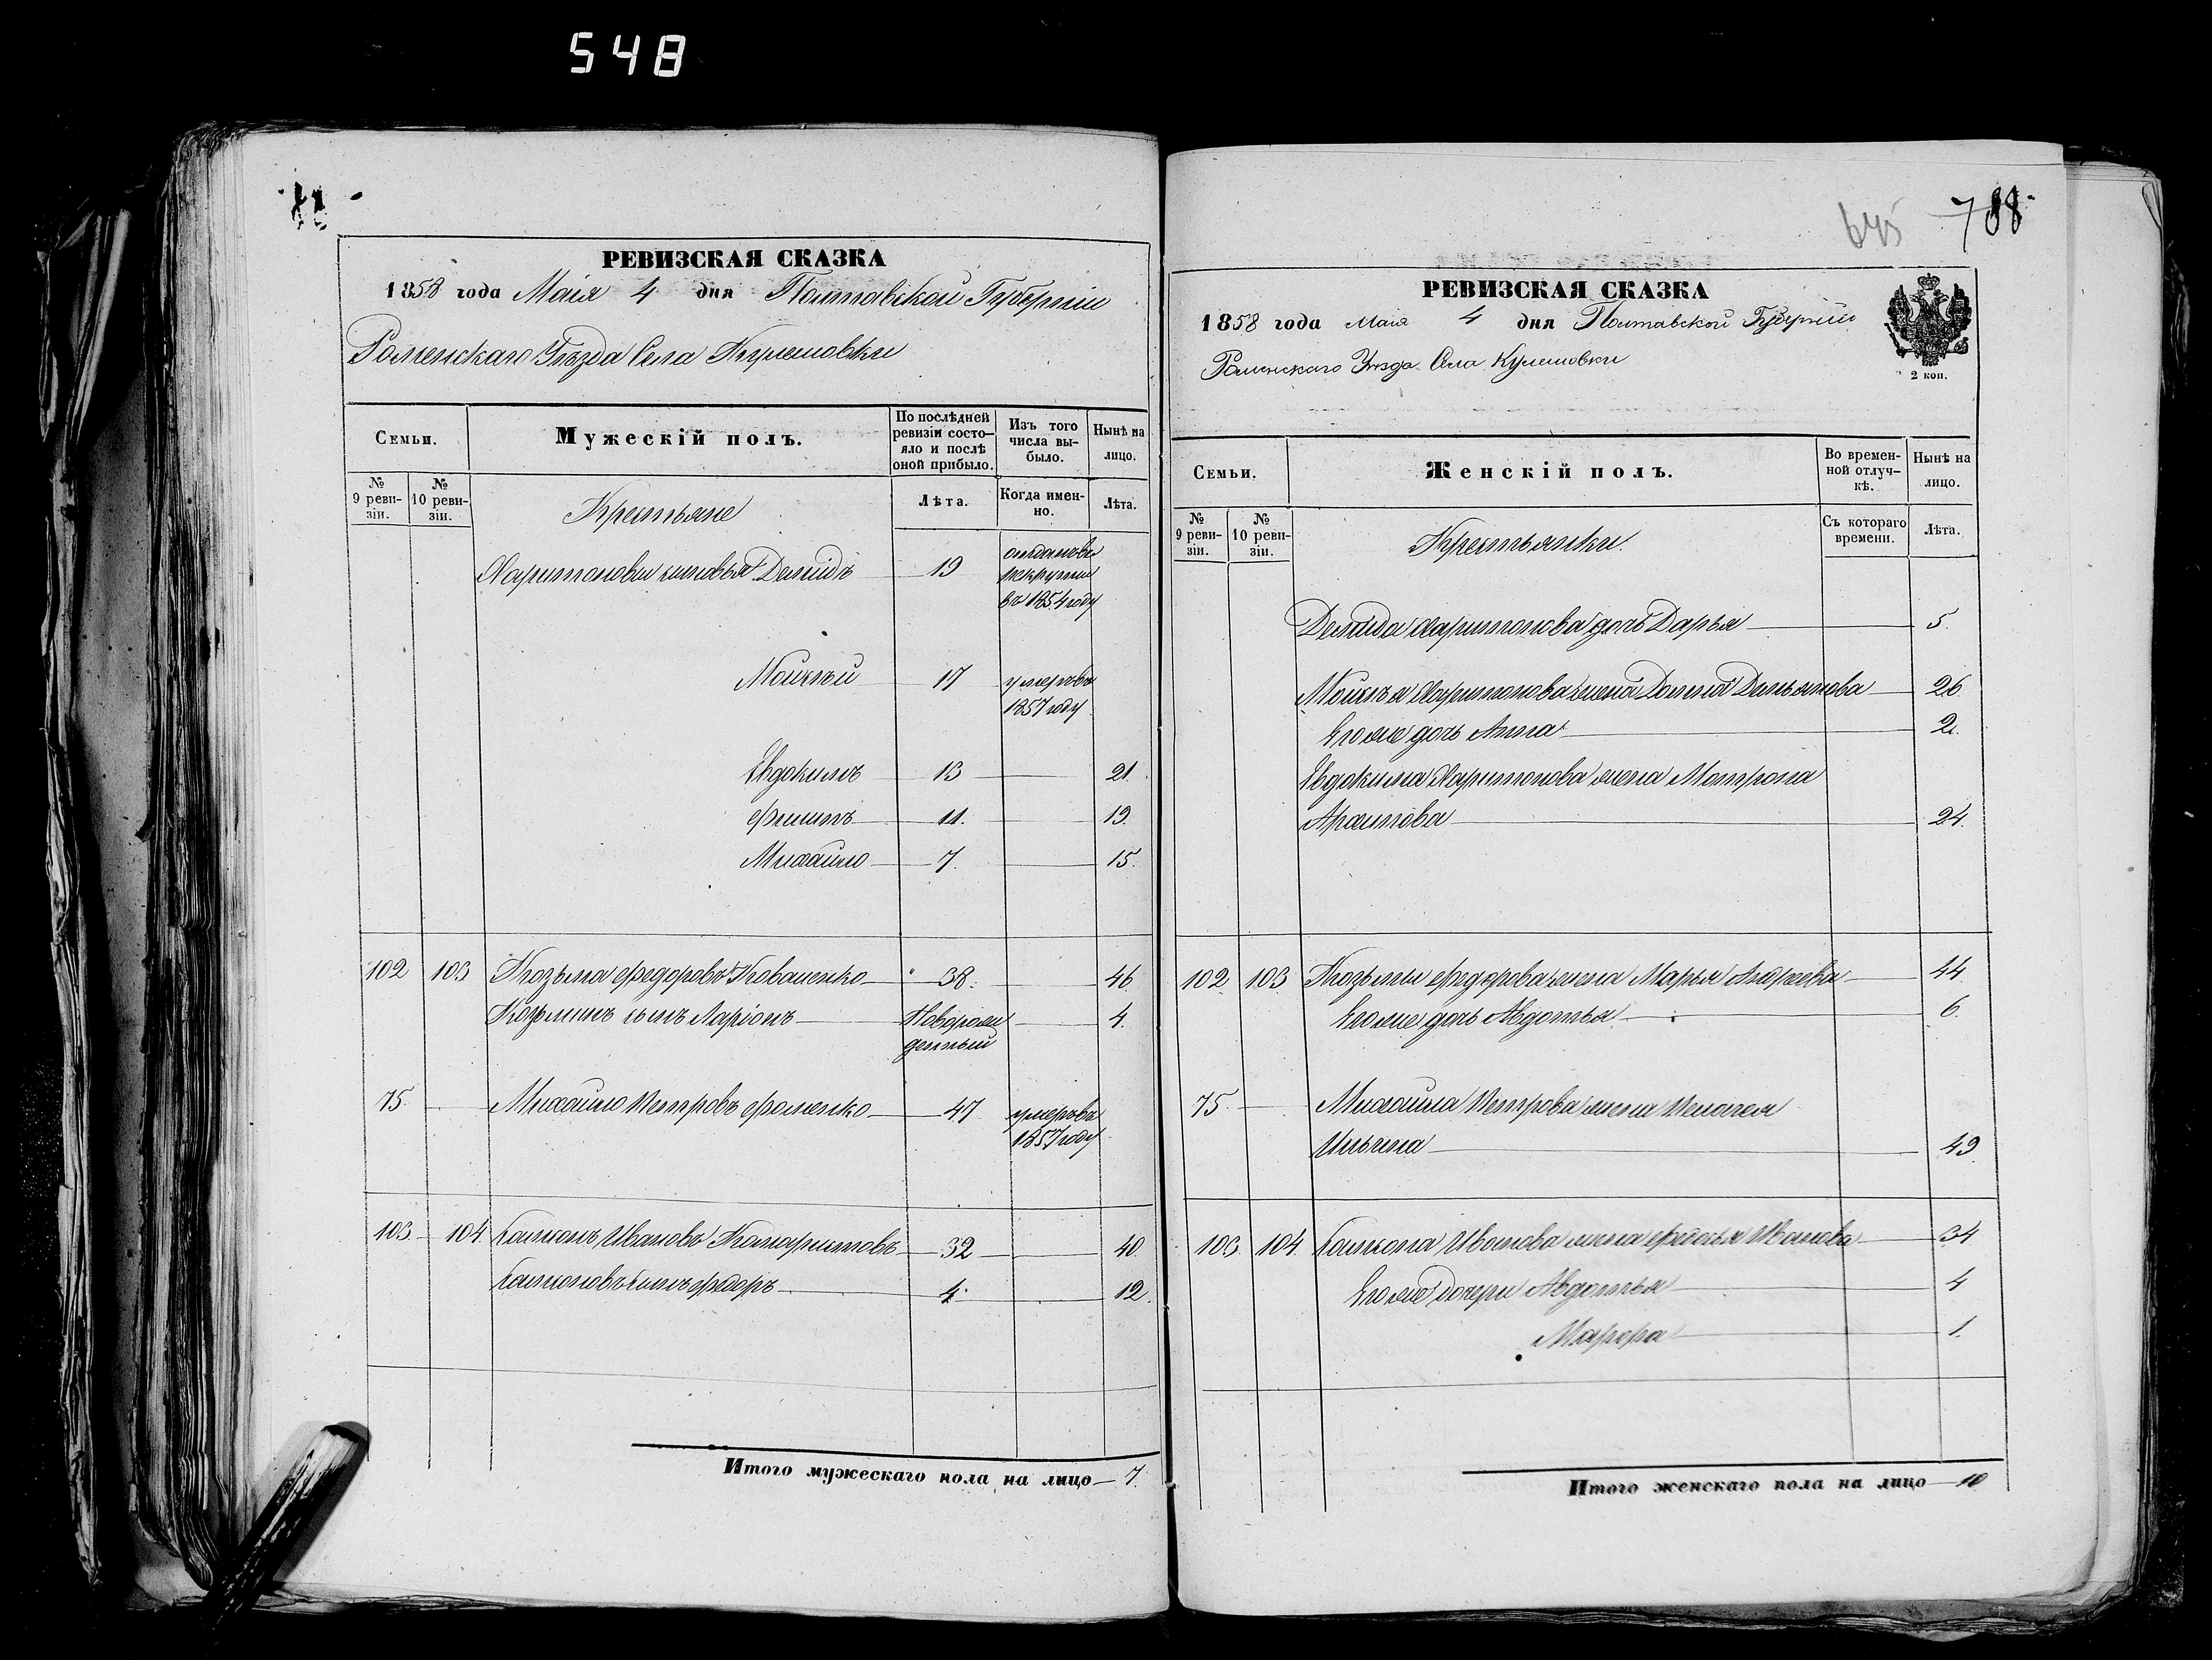 548
РЕВИЗСКАЯ СКАЗКА
1858 года Маія 4 дня Полтавской Губерніи
Роменскаго Уѣзда Села Кулешовки
Семьи.
Мужескій полъ.
По послѣдней ревизіи состо-
яло и послѣ оной прибыло.
Изъ того числа вы-
было.
Нынѣ на лицо.
№ 9 реви-
зіи.
№ 10 реви-
зіи.
Крестьяне
Лѣта.
Когда имен-
но.
Лѣта.
Харитоновы сыновья Демидъ 19 отданъ въ
рекруты
въ 1854 году
Мойсѣй 17 умеръ въ
1857 году
Евдокимъ 13 21.
Филипъ 11. 19.
Михайло 7. 15.
102 103 Козьма Федоровъ Коваленко 38. 46.
Козьминъ сынъ Ларіонъ Новорож
денный 4.
75. Михайло Петровъ Фоменко 47 умеръ въ
1857 году
103 104. Ивановъ 32 40.
сынъ Федоръ 4. 12.
Итого мужескаго пола на лицо 7.
645 788
РЕВИЗСКАЯ СКАЗКА
1858 года Маія 4 дня Полтавской Губерніи
Роменскаго Уѣзда Села Кулешовки
2 коп.
Семьи.
Женскій полъ.
Во времен-
ной отлуч-
кѣ.
Нынѣ на лицо.
№ 9 реви-
зіи.
№ 10 реви-
зіи.
Крестьянки.
Съ котораго времени.
Лѣта.
Демида Харитонова дочь Дарья 5.
Мойсѣя Харитонова жена Домна Демьянова 26.
Его же дочь Анна 2.
Евдокима Харитонова жена Мотрона
Архипова 24.
102 103 Козьмы Федорова жена Марья Андреева 44.
Его же дочь Авдотья 6.
75. Михайла Петрова жена Пелагея
Ильина 49.
103 104. Иванова жена Федосья Иванова 34
Его же дочери Авдотья 4
Марфа 1.
Итого женскаго пола на лицо 10